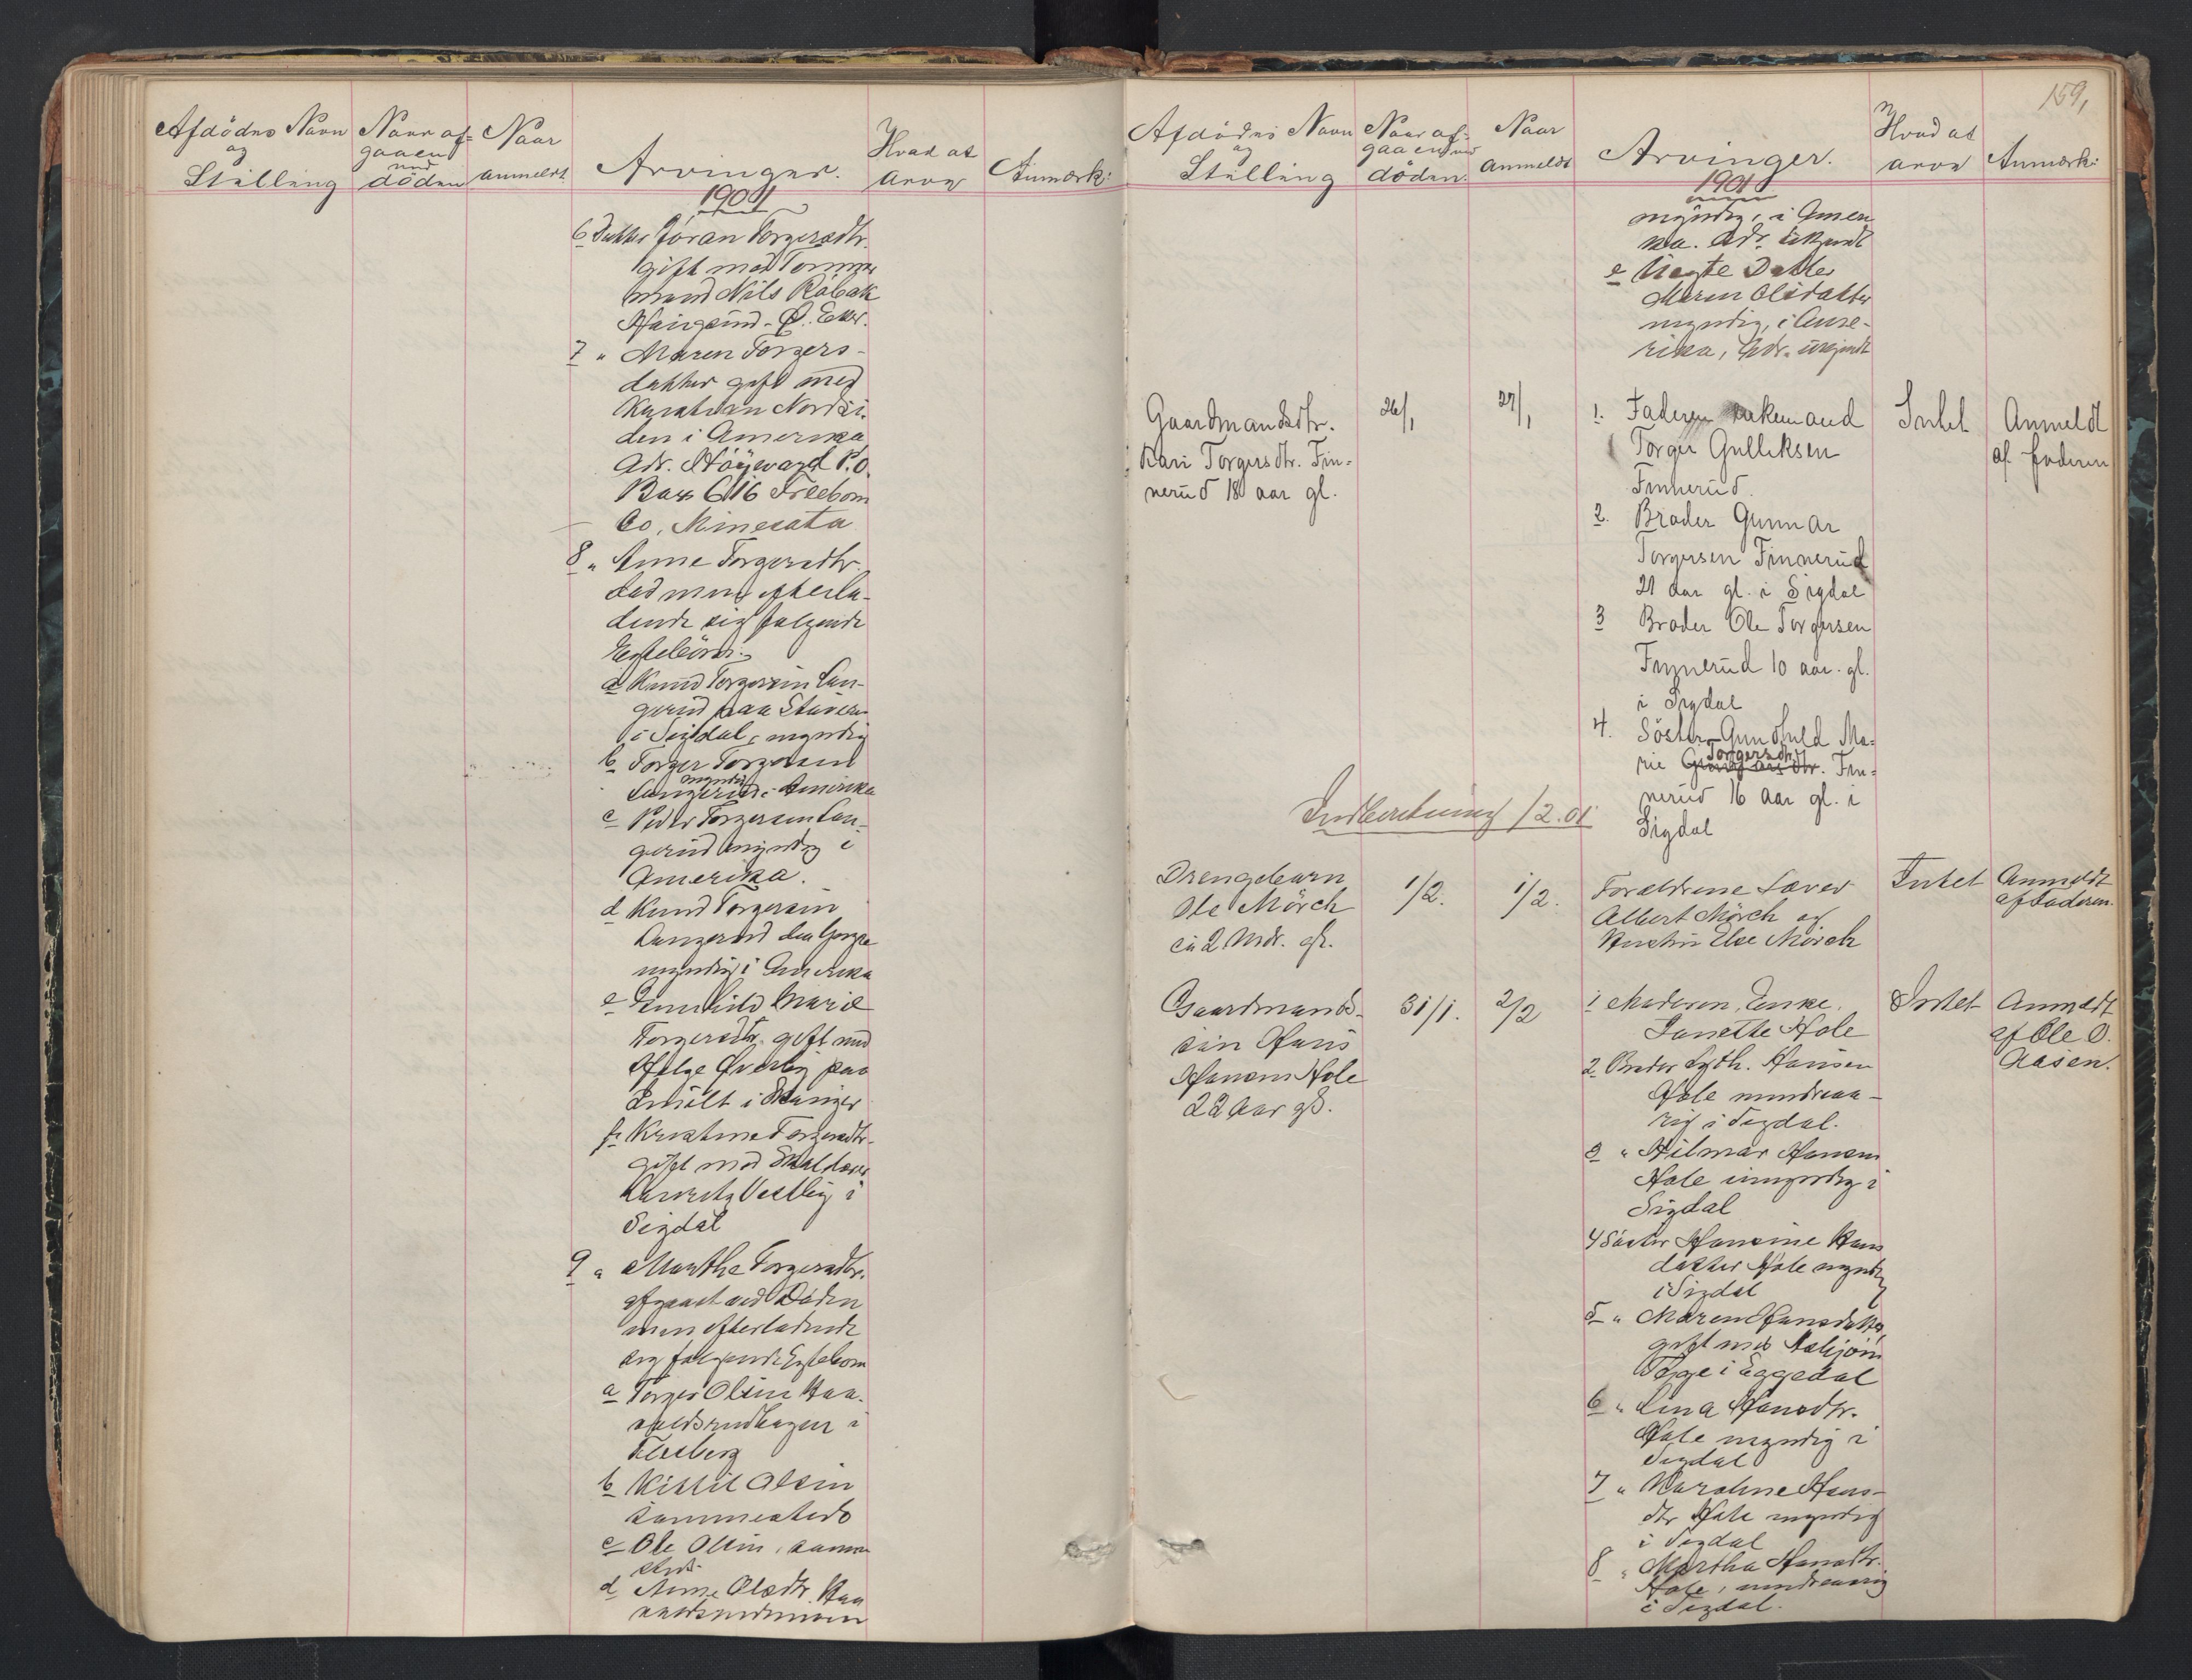 Afdödes Navn
og
Stilling
Naar af-
gaaen
ved
döden
Naar
anmeldt.
Arvinger.
Hvad at
arve
Anmærk:
1901
6 Datter Jöran Torgersdtr.
gift med Tömmer
mand Nils Råbak
Haugsund - Ø. Eker.
7 " Maren Torgers-
datter gift med
Kristian
den i Amerika
Adr. P.O.
Box 616 Freeborn
Co, Minesota
8 " Anne Torgersdtr.
död men efterla-
dende sig fölgende
Egtebörn:
a Knud Torgersen Lan-
gerud paa Staveren
i Sigdal, myndig
b Torger Torgersen
myndig
Langerud i Amerika
c Peder Torgersen Lan-
gerud myndig i
Amerika.
d Knud Torgersen
Langerud den yngre
myndig i Amerika
e Gunhild Marie
Torgersdtr. gift med
Helge Øverby paa
i
f Kristine Torgersdtr.
gift med
Vestby i
Sigdal
9 " Marthe Torgersdtr.
afgaaet ved Döden
men efterladende
sig fölgende Egtebörn
a Torger Olsen Haa-
valdsrudhagen i
Flesberg
b Kittil Olsen
sammesteds
c Ole Olsen, samme
steds
d Anne Olsdtr. Haa
159,
Afdödes Navn
og
Stilling
Naar af-
gaaen ved
döden.
Naar
anmeldt
Arvinger.
Hvad at
arve
Anmærk:
1901
myndig, i Ameri
ka. Adr. ukjendt
e Uegte Datter
Maren Olsdatter
myndig, i Ame-
rika, Adr. ukjendt
Gaardmandsdtr.
Kari Torgersdtr. Fin-
nerud 18 aar gl.
26/1
27/1
1. Faderen enkemand
Torger Gulliksen
Finnerud.
Intet
Anmeldt
af faderen
2. Broder Gunnar
Torgersen Finnerud
21 aar gl. i Sigdal
3 Broder Ole Torgersen
Finnerud 10 aar. gl.
i Sigdal
4. Söster Gunhild Ma-
Torgersdtr
rie dtr. Fin-
nerud 16 aar gl. i
Sigdal
Indberetning 1/2.01
Drengebarn
Ole Mörch
ca 2 Mdr. gl.
1/2.
1/2.
Forældrene Lærer
Albert Mörch og
Hustru Else Mörch
Intet
Anmeldt
af Faderen.
Gaardmands-
sön Hans
Hansen Hole
22 Aar gl.
31/1.
2/2
1 Moderen, Enke
Janette Hole
Intet
Anmeldt
af Ole O.
Aasen.
2 Broder Hansen
Hole mindreaa-
rig i Sigdal.
3 " Hilmar Hansen
Hole umyndig i
Sigdal
4 Söster Hansine Hans
datter Hole myndig
i Sigdal
5 " Maren Hansdatter
gift med Asbjörn
Teige i Eggedal
6 " Lina Hansdtr.
Hole myndig i
Sigdal
7 " Karoline Hans-
dtr Hole myndig
i Sigdal
8 " Martha Hansdtr.
Hole, mindreaarig
i Sigdal.